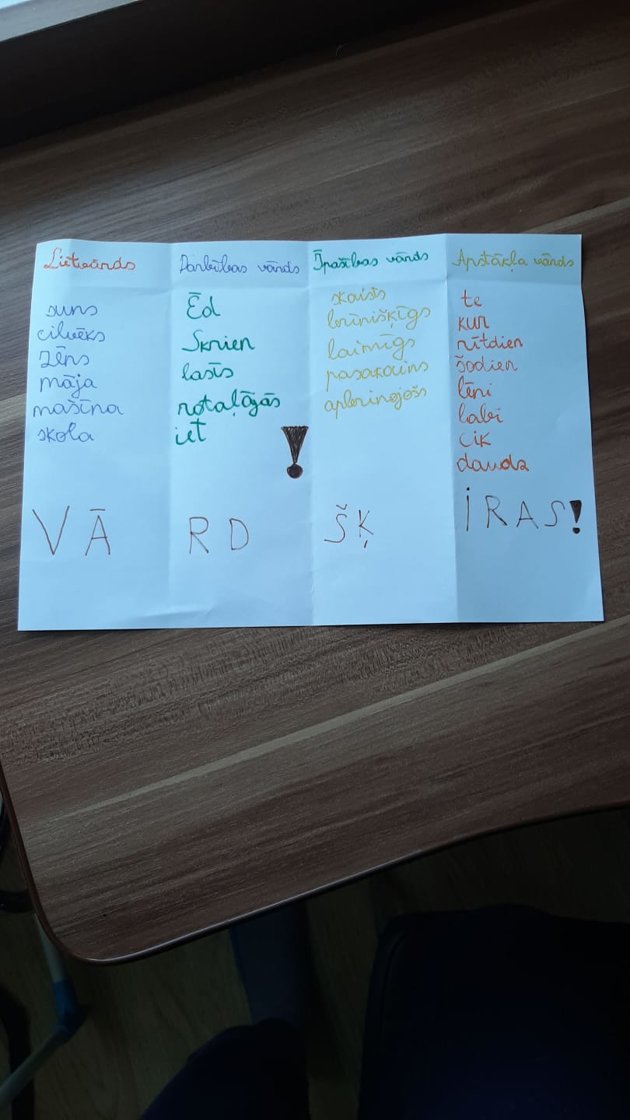 Lietvārds
suns
cilvēks
zēns
māja
mašīna
skola
VĀ
Darbības vārds
Ēd
Skrien
lasīs
rotaļājās
iet
!
RD
Īpašības vārds
skaists
brīnišķīgs
laimīgs
pasakains
apbrīnojošs
ŠĶ
Apstākļa vārds
te
kur
rītdien
šodien
lēni
labi
cik
daudz
iRAS!